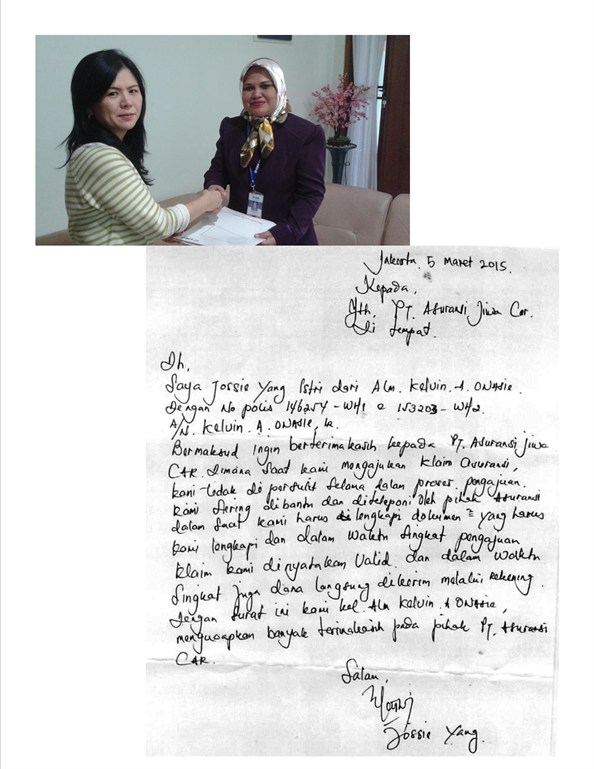 Jakarta, 5 Maret 2015.
Kepada,
Yth, PT. Asuransi Jiwa Car.
Di tempat.
Dh,
Saya Jossie Yang Istri dari Alm. Kelvin. A. ONAsie.
Dengan No polis 146254 - WH1 & 153203 - WH2.
A/N. Kelvin. A. ONAsie,
Bermaksud Ingin berterimakasih kepada PT. Asuransi Jiwa
CAR. Dimana Saat kami mengajukan Klaim Asuransi,
kami tidak di persulit Selama dalam proses pengajuan.
kami Sering dibantu dan ditelponi oleh pihak Asuransi
dalam Saat kami harus lengkapi dokumen = yang harus
kami lengkapi dan dalam waktu Singkat pengajuan
klaim kami dinyatakan Valid. dan dalam waktu
Singkat Juga dana langsung dikirim melalui rekening.
Dengan Surat ini kami kel. Alm Kelvin. A ONAsie,
mengucapkan banyak terimakasih pada pihak PT. Asuransi
CAR.
Salam,
Jossie Yang.